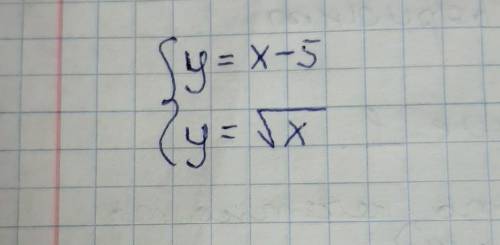 { y = x - 5
y = √x